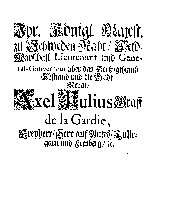 Ihr. Königl. Majest.
zu Schweden Raht / Feld-
Marschall Lieutenant und Gene-
ral-Gouverneur über das Hertzogthumb
Ehstland und die Stadt
Reval /
Axel Julius Graff
de la Gardie,
Freyherr / Herr auff
und Freiberg / ec.